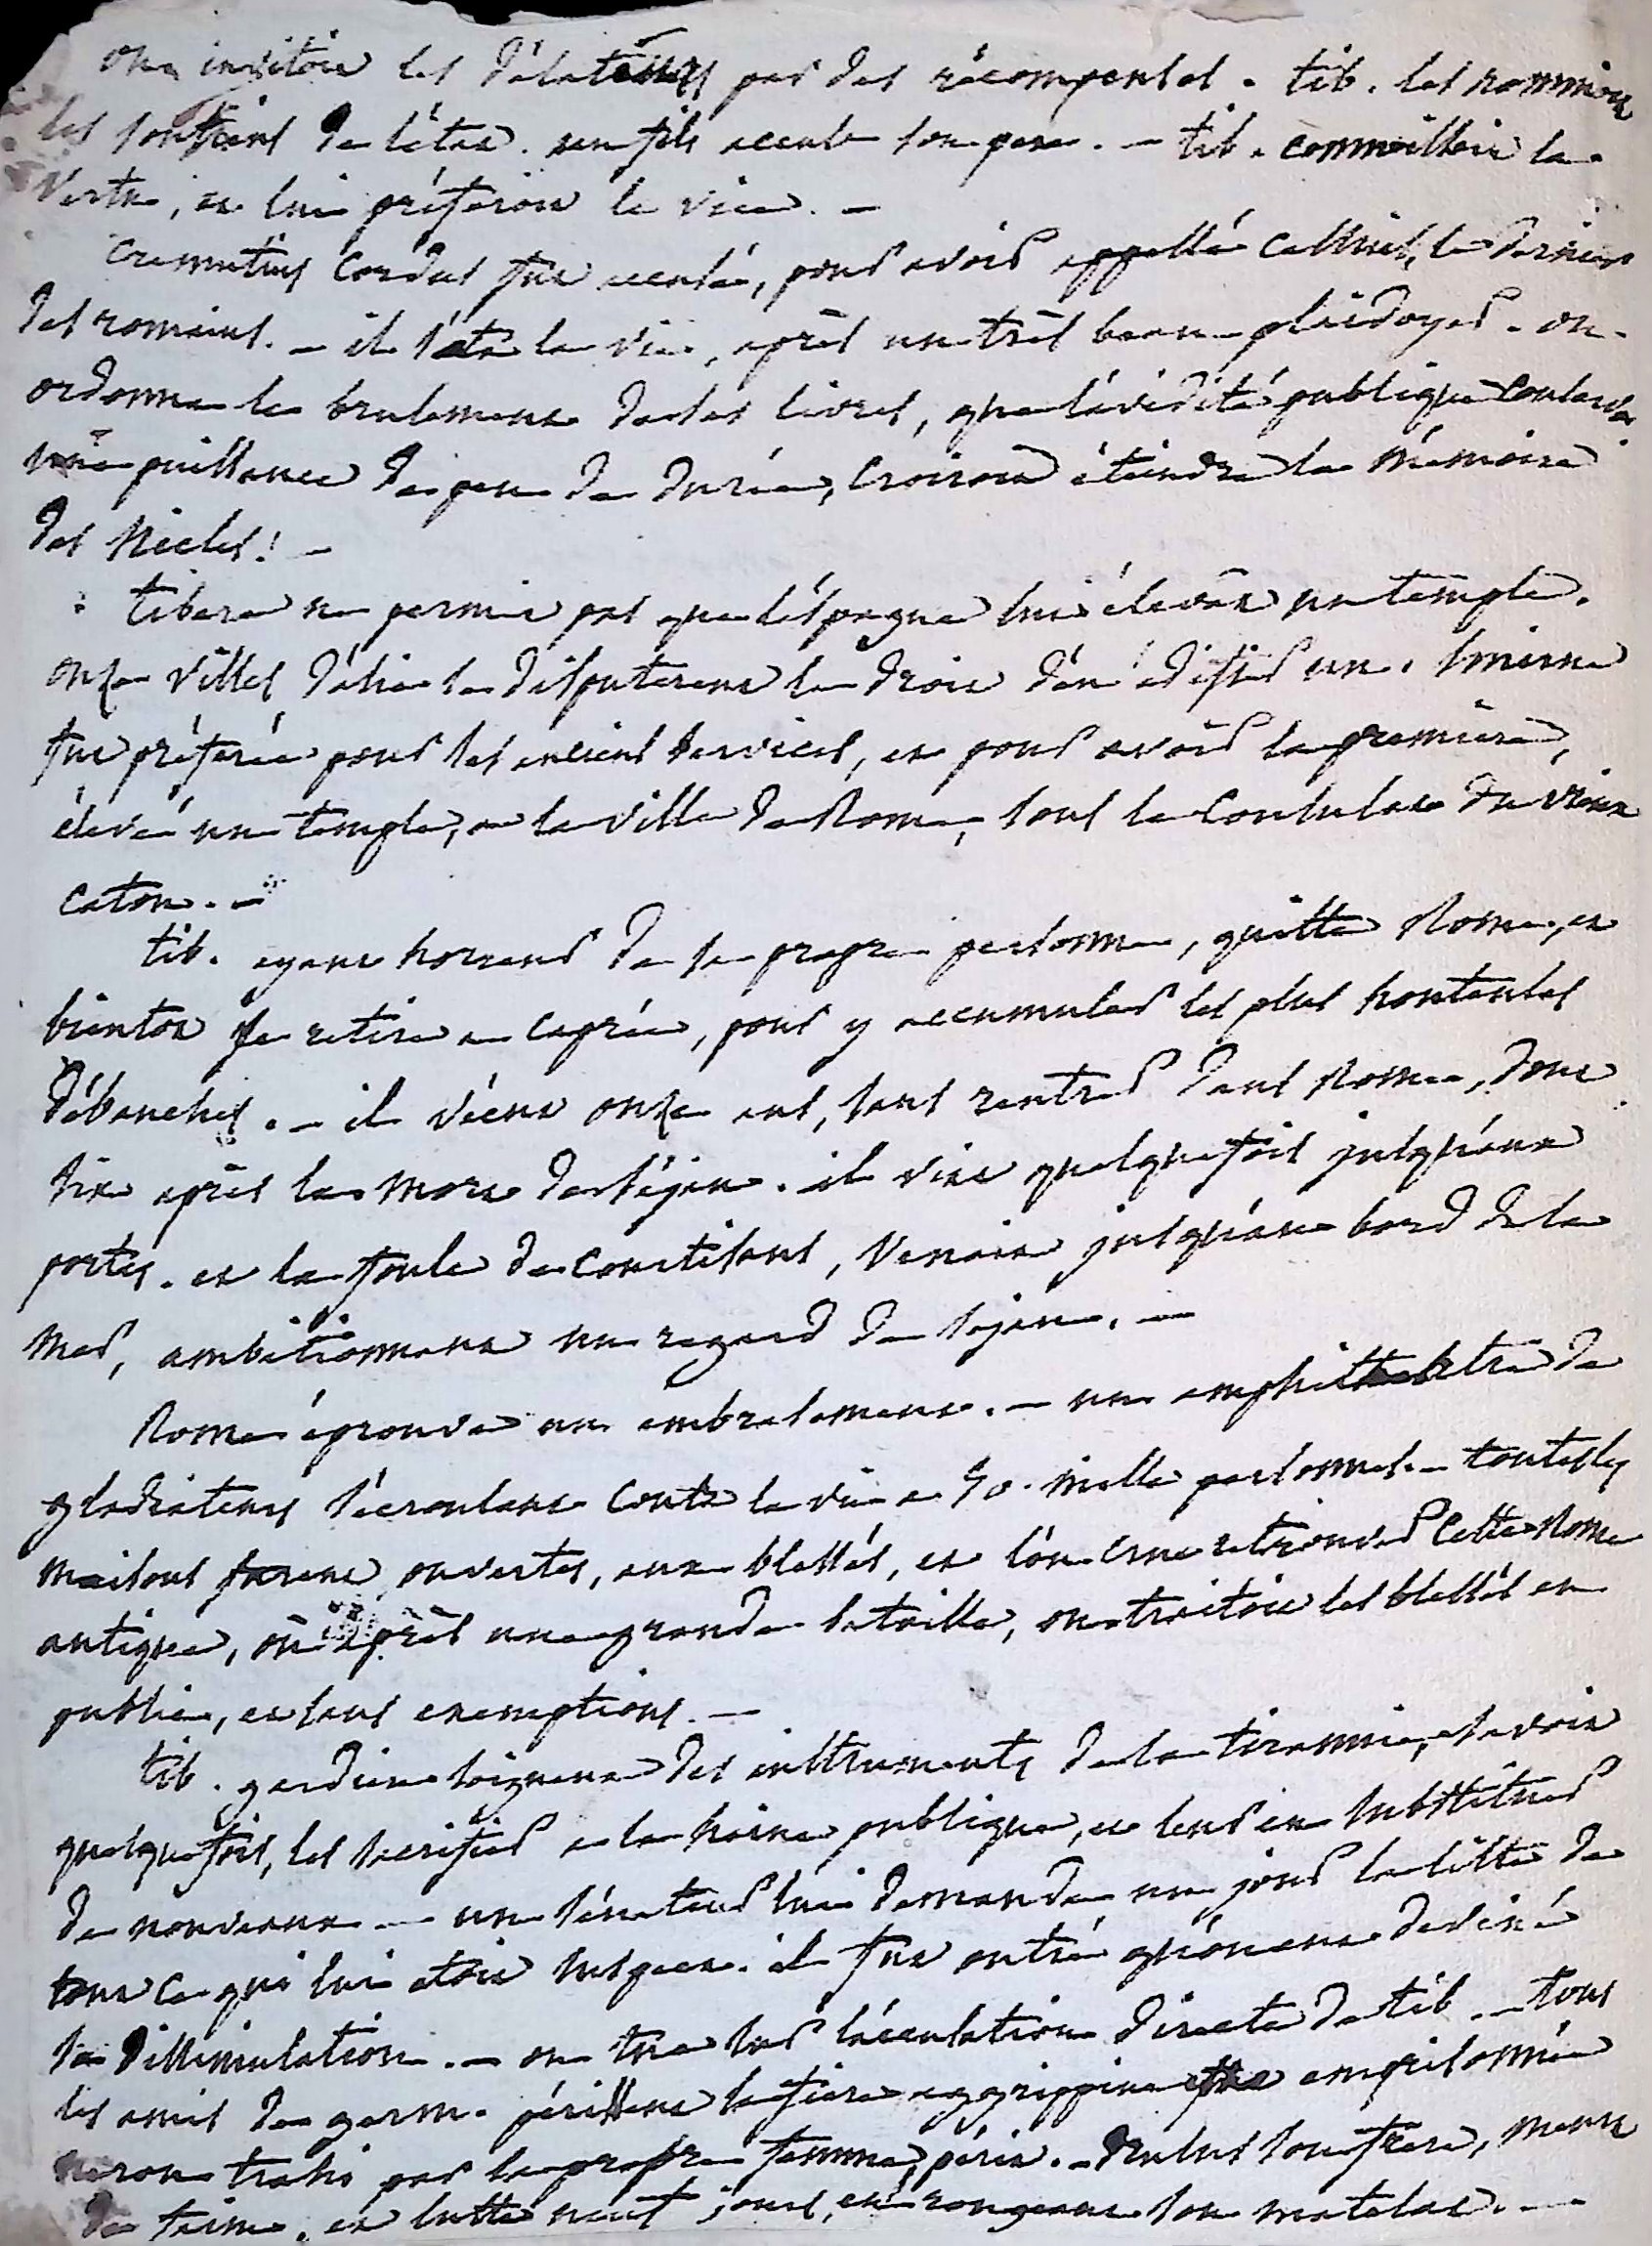 on invitoit les délateurs par des récompenses. tib. les nommoit
les soutiens de l'état. un fils accuse son pere. - tib. connoissoit la
vertu, et lui préferoit le vice. -
Cremutius Cordus fut accusé, pour avoir appellé Cassius, le dernier
des romains. - il s'ota la vie, après un très beau plaidoyer. on
ordonna le brulement de ses livres, que l'avidité publique conserva
une puissance de peu de durée, croiroit éteindre la mémoire
des siecles! -
tibere ne permit pas que l'éspagne lui élevât un temple.
onze villes d'asie se disputerent le droit d'en édifier un. Smirne
fut préferée pour ses anciens services, et pour avoir la premiere,
élevé un temple, a la ville de Rome, sous le consulat du vieux
caton. -
tib. ayant horreur de sa propre personne, quitta Rome, et
bientot se retira a caprée, pour y accumuler les plus honteuses
débauches. - il vécut onze ans, sans rentrer dans Rome, dont
six après la mort de séjan. il vint quelquefois jusqu'aux
portes. et la foule de courtisans, venait jusqu'au bord de la
mer, ambitionnant un regard de sejan. -
Rome éprouva un embrasement. - un amphithéatre de
gladiateurs s'écroulant couta la vie a 50. mille personnes. - toutes les
maisons furent ouvertes, aux blessés, et l'on crut retrouver cette Rome
antique, où après une grande bataille, on traitoit les blessés en
public, et sans exemptions. -
tib. gardien soigneux des instruments de la tirannie, savoit
quelquefois, les sacrifier a la haine publique, et leur en substituer
de nouveaux - un sénateur lui demanda un jour la liste de
tout ce qui lui etoit suspect. il fut outré qu'on eut deviné
sa dissimulation. - on tue sur l'accusation directe de tib. - tous
les amis de germ. périssent la fiere aggrippine fut emprisonnée
neron trahi par sa propre femme, périt. - Drusus son frere, meurt
de faim. et lutte neuf jours, en rongeant son matelas. -